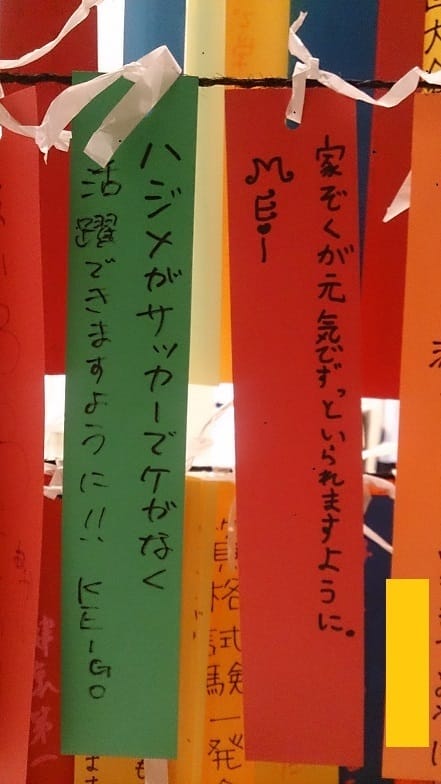 家ぞくが元気でずっといられますように。
MEi
ハジメがサッカーでケガなく
活躍できますように!! KEIGO
格試験一発
康第一